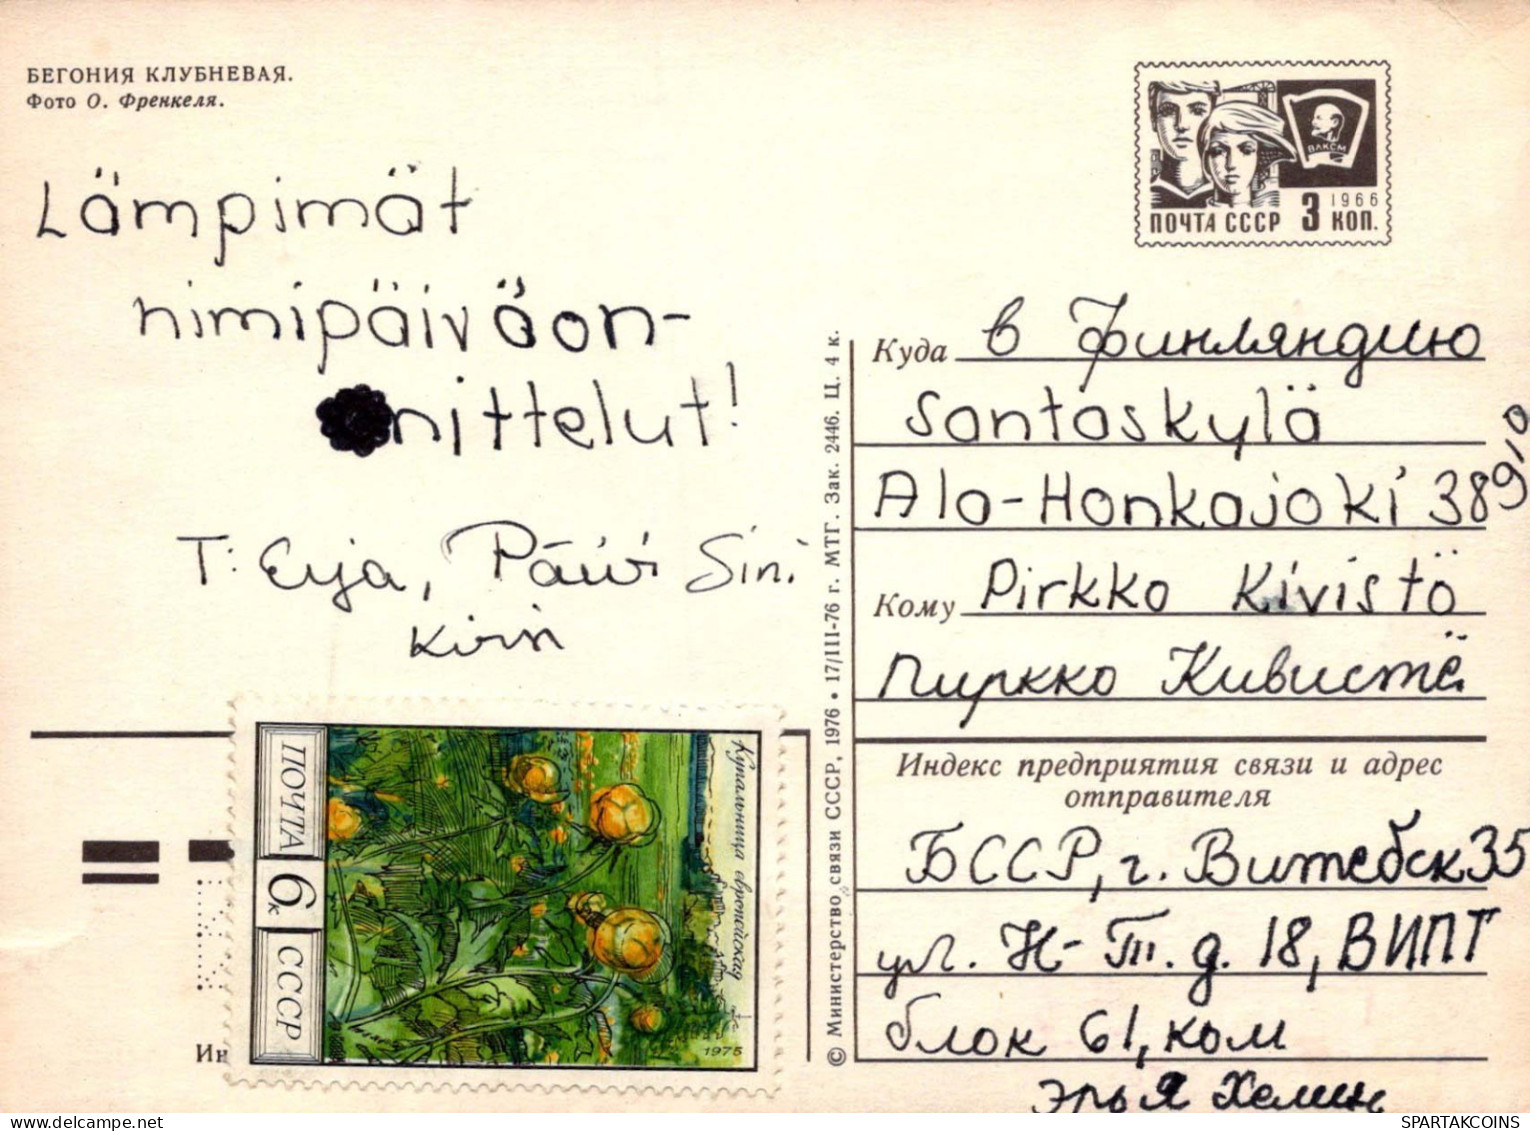 БЕГОНИЯ КЛУБНЕВАЯ.
Фото О. Френкеля.
Lämpimät
nimipäiväon-
nittelut!
T: Eija, Päivi Sini
Kirin
ВЛКСМ
1966
ПОЧТА СССР 3 КОП.
Куда в Финляндию
Santaskylä
Ala-Honkajoki 38910
Кому Pirkko Kivistö
Пиркко Кивистё
Индекс предприятия связи и адрес
отправителя
БССР, г. Витебск 35
ул. Н-Т. д. 18, ВИПТ
блок 61, ком
Эрья Хелин
© Министерство связи СССР, 1976 • 17/III-76 г. МТГ. Зак. 2446. Ц. 4 к.
ПОЧТА 6к СССР
Купальница европейская
1975
Ин
SPARTAKCOINS